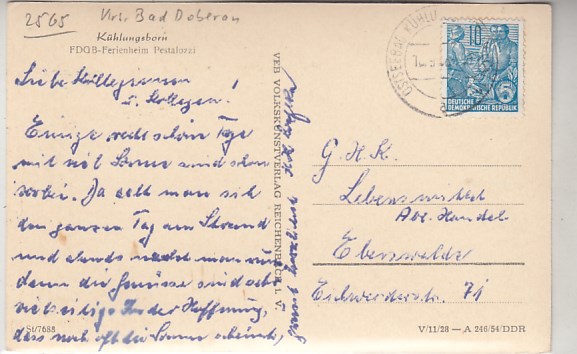 2565 Krs. Bad Doberan
Kühlungsborn
FDGB-Ferienheim Pestalozzi
Liebe Kolleginnen
u. Kollegen!
Einige recht schöne Tage
mit viel Sonne sind schon
vorbei. Da aalt man sich
den ganzen Tag am Strand
und abends
dann die Genüsse sind
vielseitig. In der Hoffnung,
dass noch oft die Sonne scheint,
VEB VOLKSKUNSTVERLAG REICHENBACH i. V.
OSTSEEBAD KÜHLU
10
5
DEUTSCHE
DEMOKRATISCHE REPUBLIK
G.H.K.
Lebensmittel
Abt. Handel
Eberswalde
Eichwerderstr. 71
St/7688
V/11/28 — A 246/54/DDR